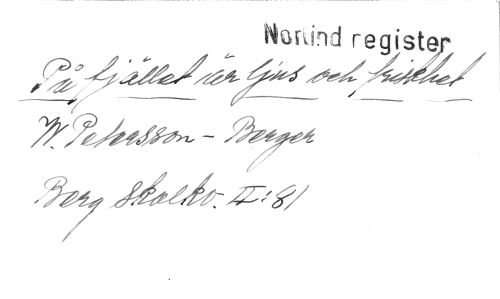 Norlind register
På fjället är ljus och friskhet
W. Peterson-Berger
Berg Skolko. II:81